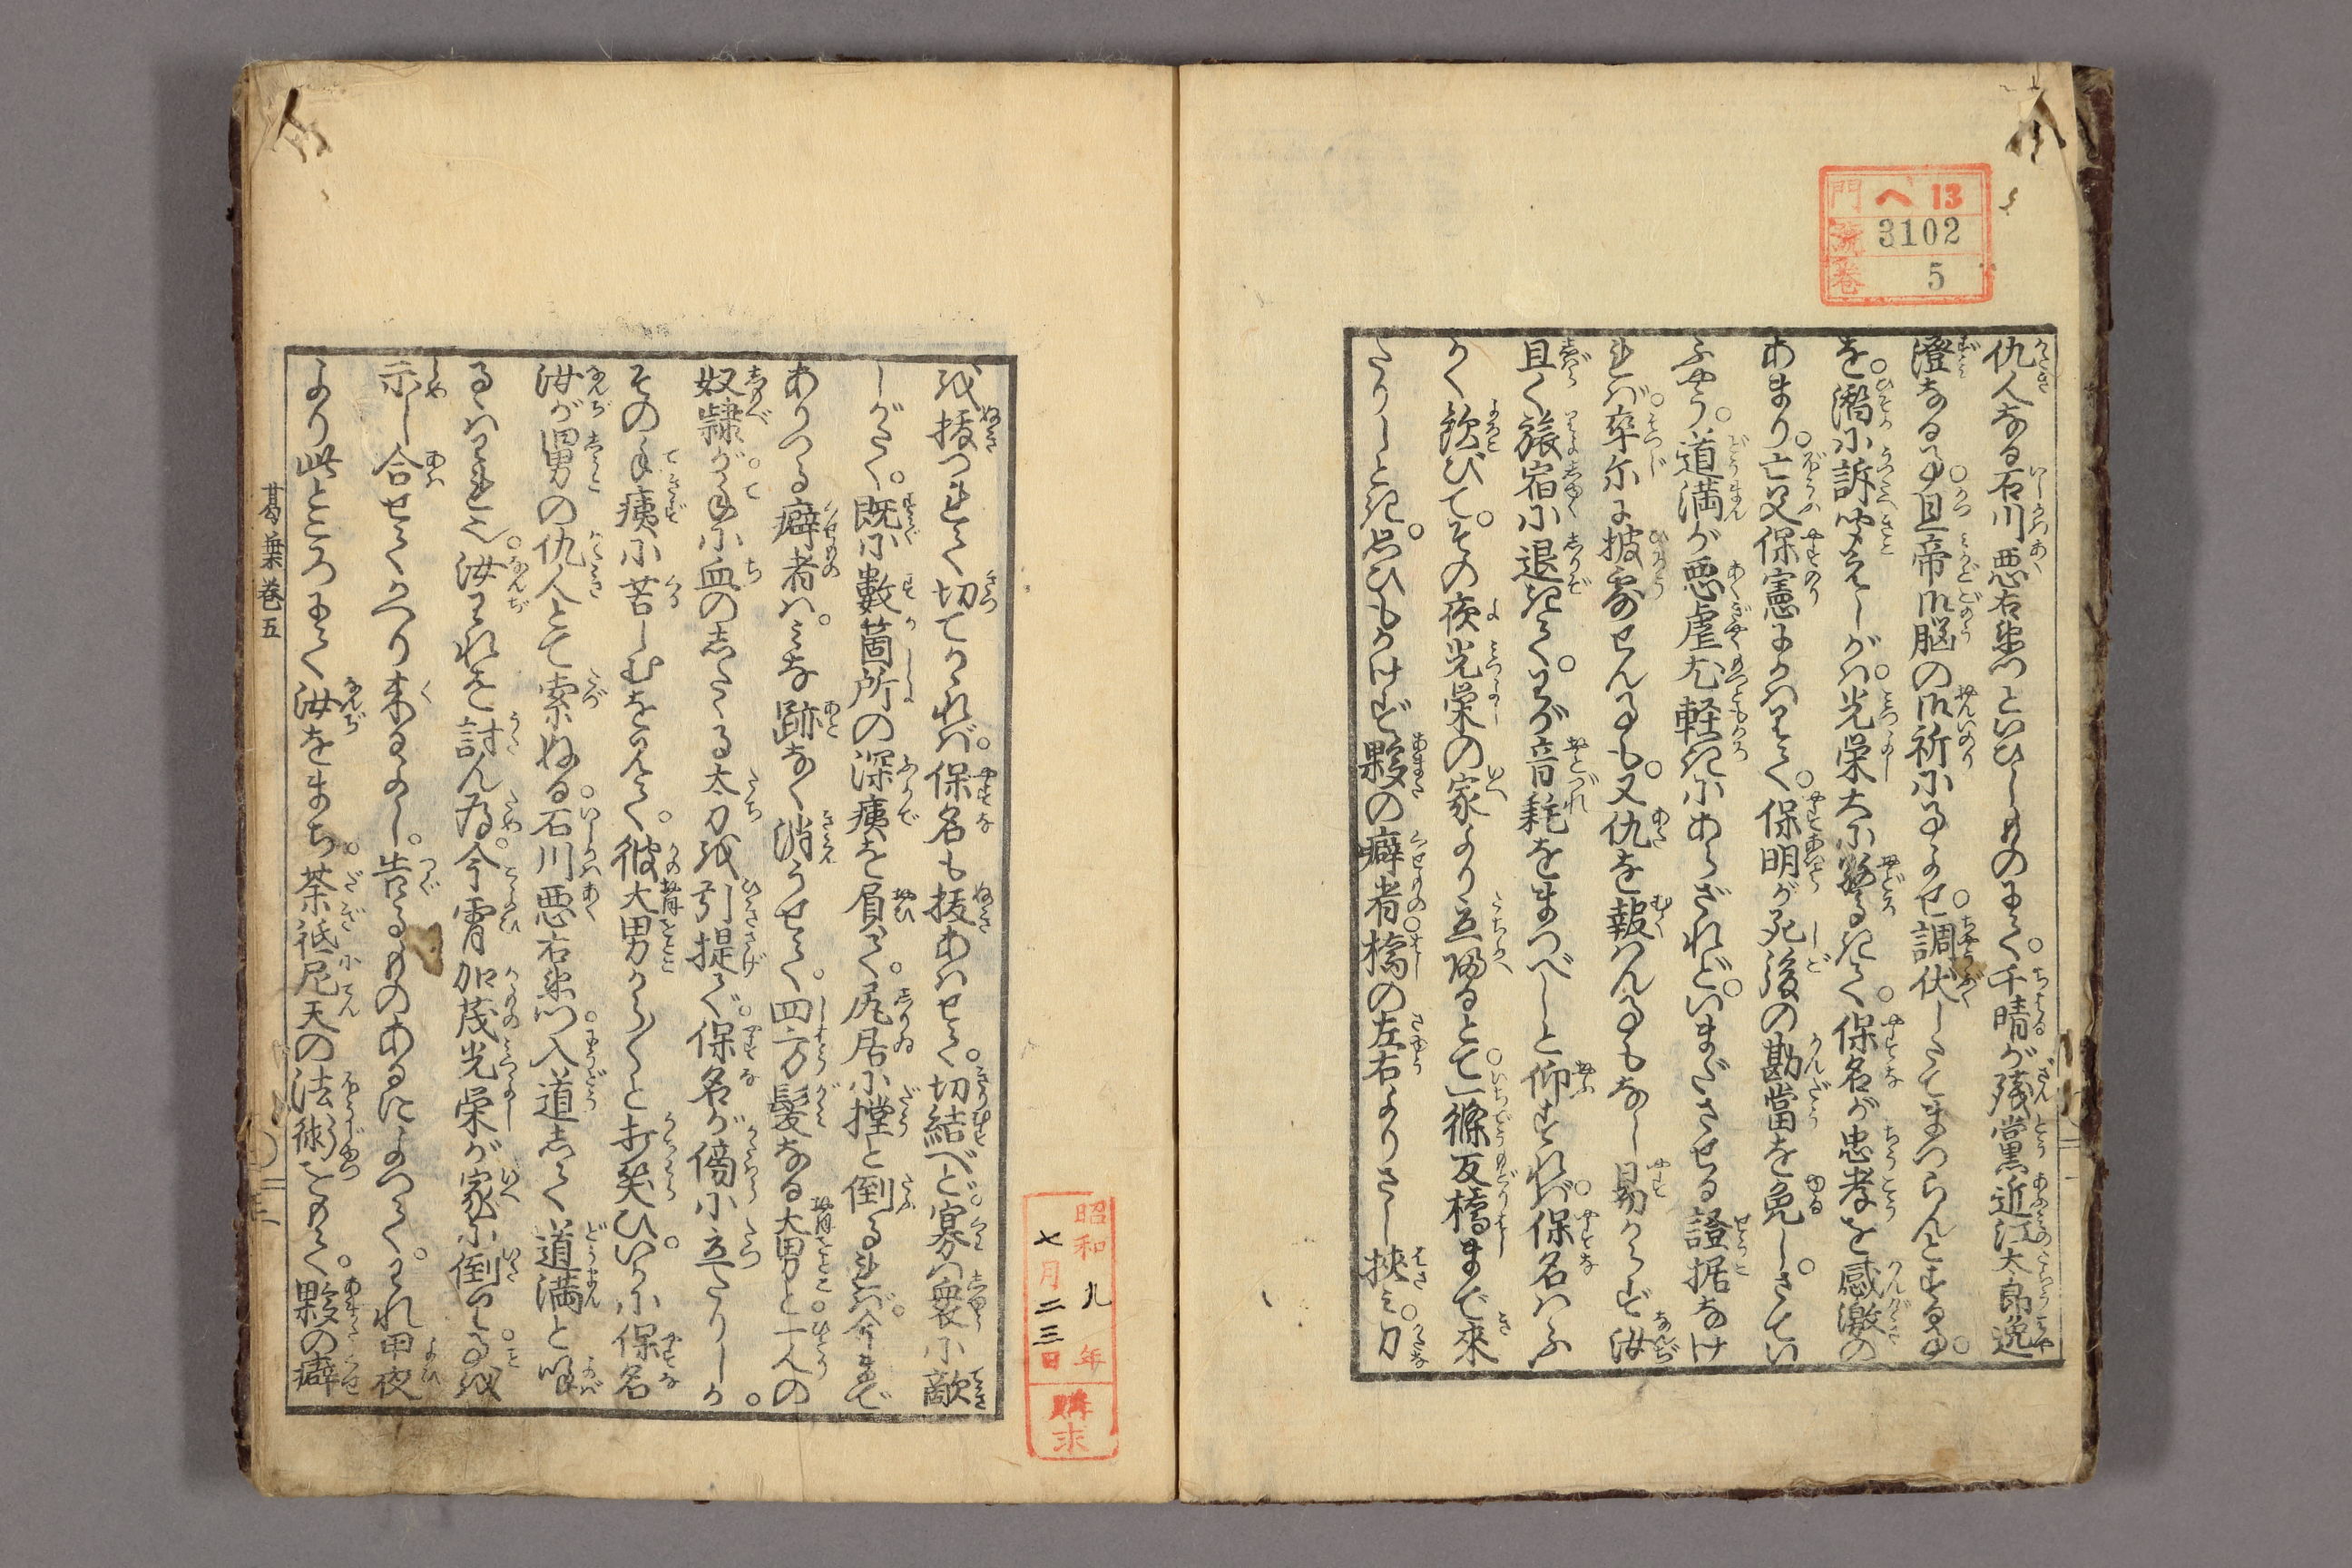 門 ヘ 13
號 3102
巻 5
仇人なる石川悪右衛門といひしものにて。千晴が残黨近江太郎逸
澄なる事。且帝御脳の御祈に事よせ。調伏したてまつらんとする事
を。潜に訴聞えしがバ。光栄大に驚るきて。保名が忠孝を感激の
あまり。亡父保憲にかハりて。保明が死後の勘當を免し。さてい
ふやう。道満が悪虐尤軽きにあらざれど。いまださせる證据なけ
れバ。卒尓に披露せん事も。又仇を報ハん事もなし易からず。汝
且く旅宿に退きて。わが音耗をまつべしと仰すれバ。保名ハふ
かく歓びて。その夜光栄の家より立帰るとて。一條反橋まで来
たりしとき。思ひもかけず夥の癖者。橋の左右よりさし挟ミ。刀
を抜つれて切てかゝれバ。保名も抜あハせて。切結べど。寡ハ衆に敵
しがたく。既に數箇所の深痍を負て。尻居に撞と倒るれバ。今まで
ありつる癖者ハ。ミな跡なく消うせて。四方髪なる大男と。一人の
奴隷が。手に血のしたゝる太刀を引提て。保名が傍に立たりしが。
その手痍に苦しむを見て。彼大男から〱と打笑ひ。いかに保名
汝が男の仇人とて索ぬる。石川悪右衛門入道して道満と喚
るハわれ也。汝われを討ん為。今霄加茂光栄が家に到り。事を
示し合せてかへり来るよし。告るものあるによつて。われ甲夜
より此ところにて汝をまち。荼祇尼天の法術をもて。夥の癖
葛葉巻五
昭和九年
七月二三日
購求